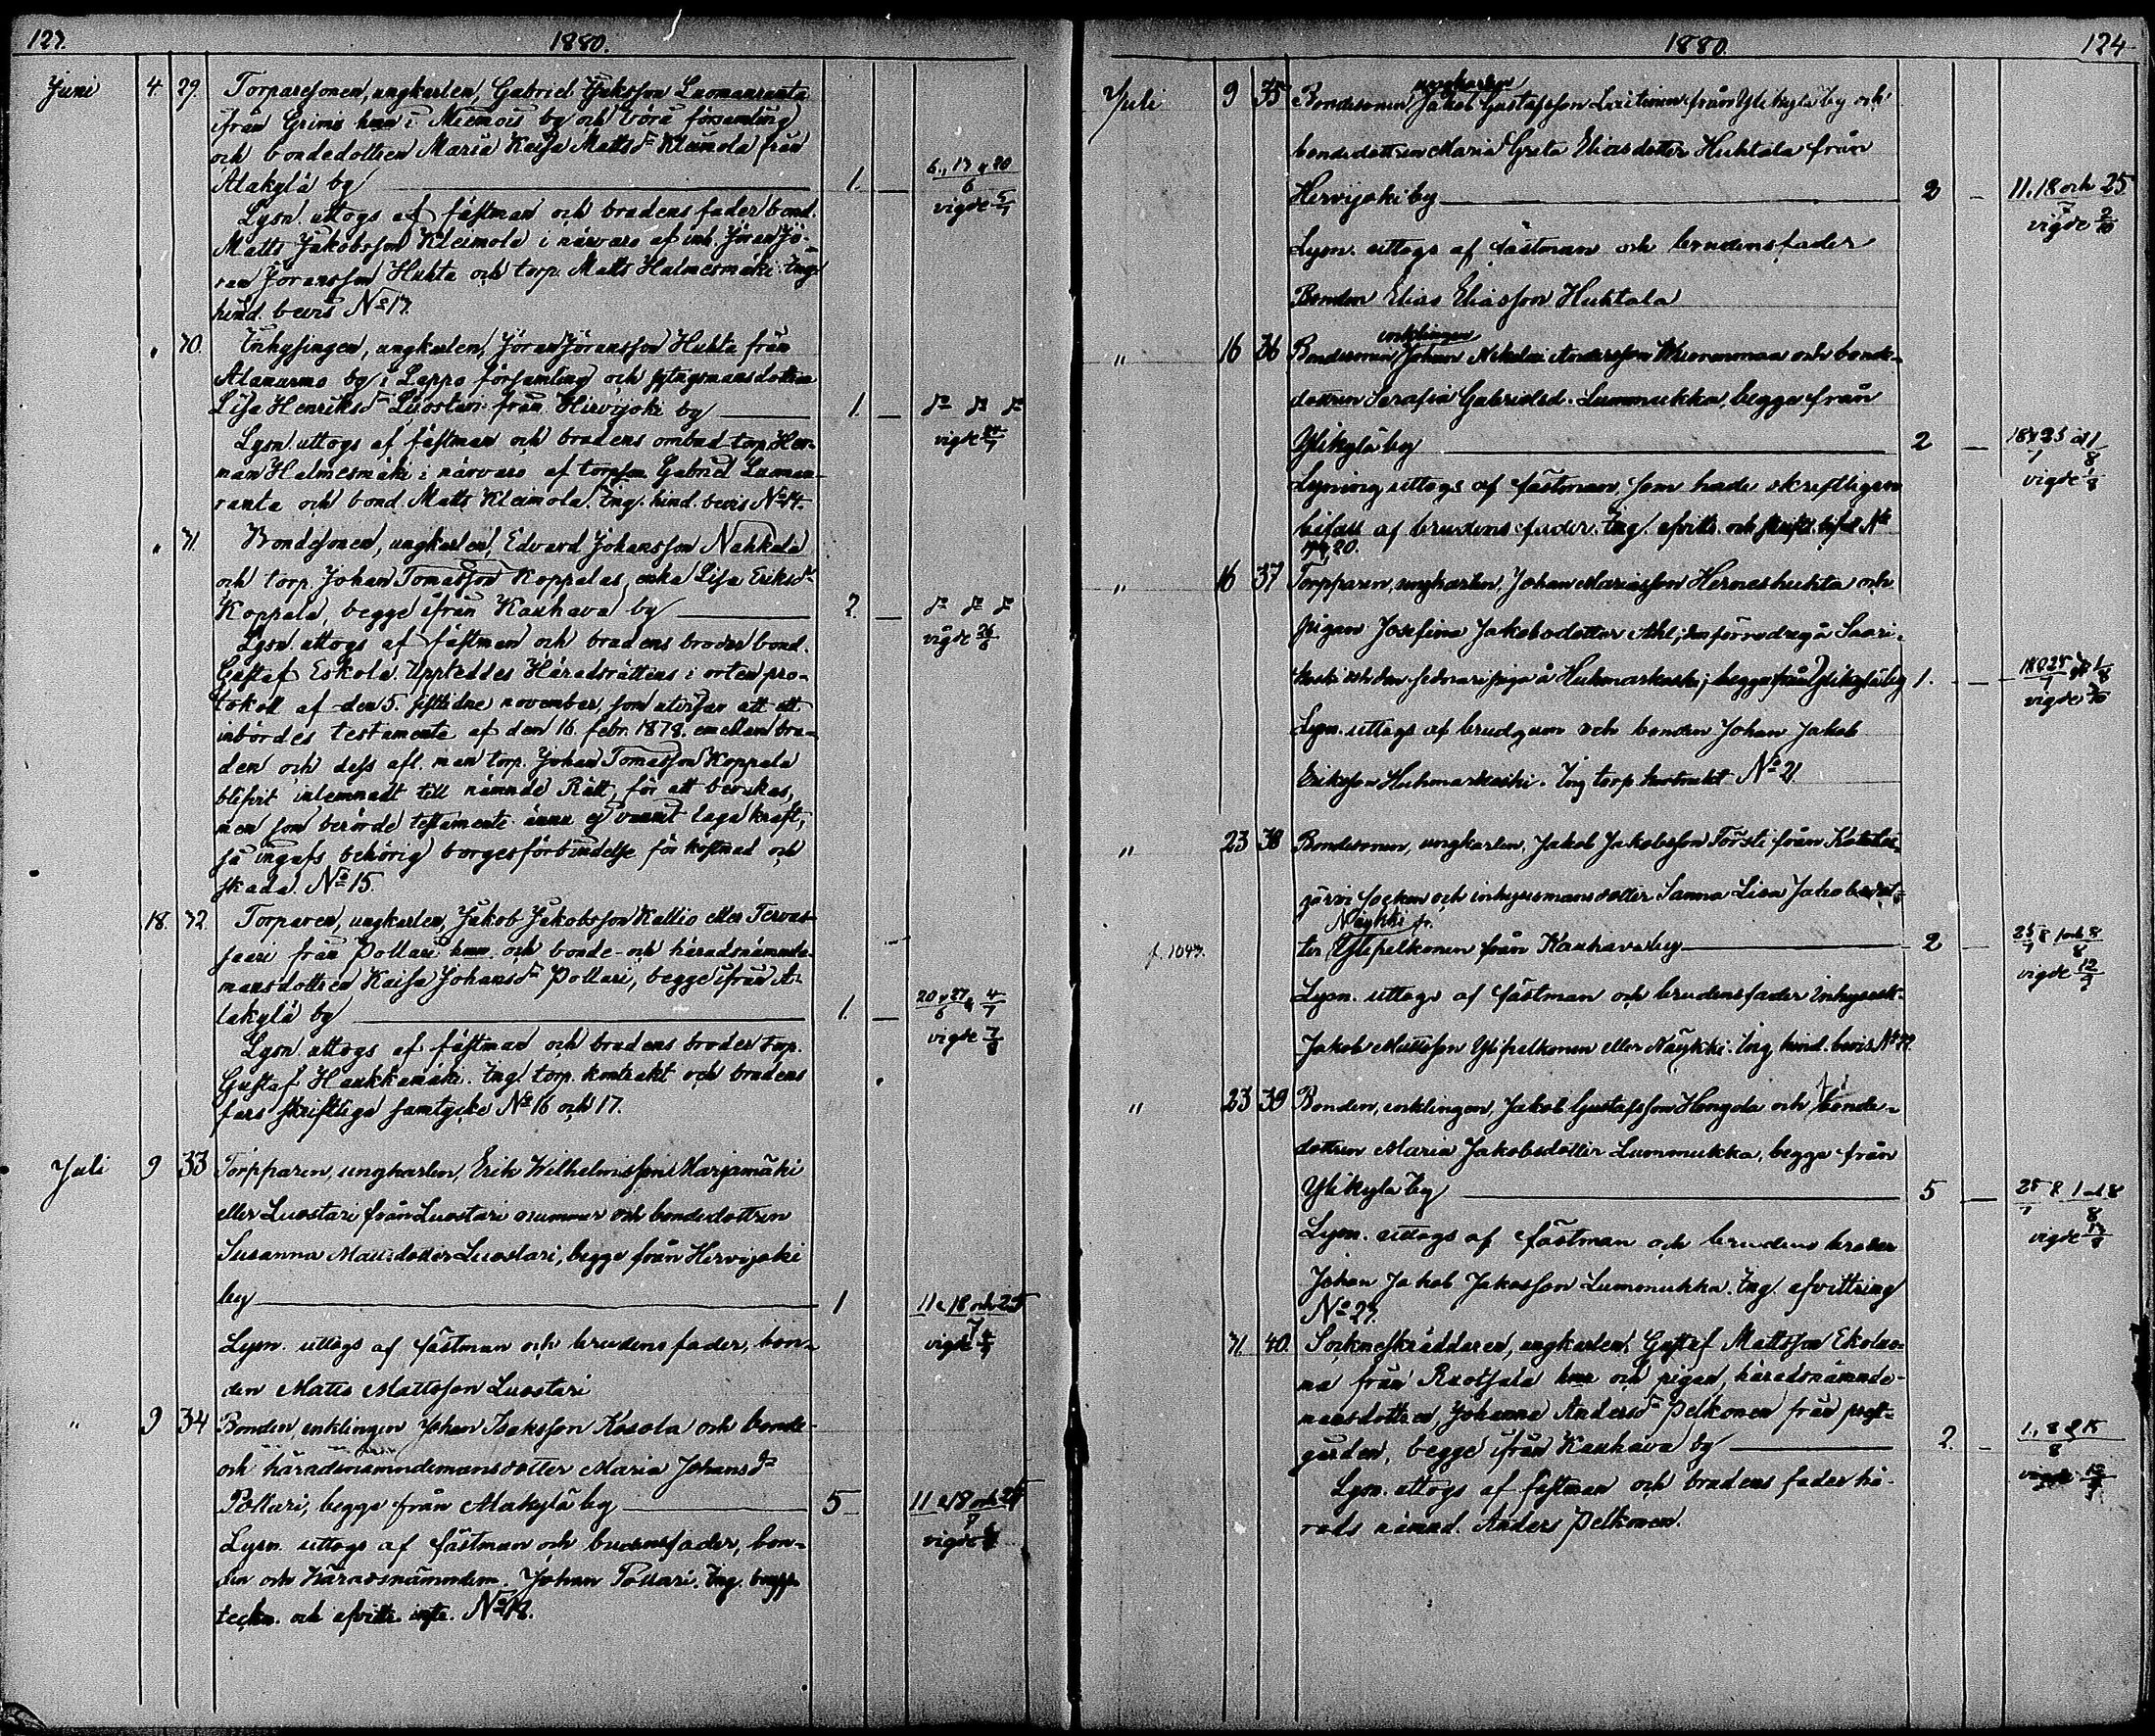 123. 1880.
Juni 4. 29. Torparesonen, ungkarlen, Gabriel Isaksson Luomanranta
ifrån Grims hmn i Miemois by och Vörå församling
och bondedottren Maria Kaisa Mattsdr Kleimola från
Alakylä by 1. 6., 13 & 20/6
vigde 5/7
Lysn. uttogs af fästman och brudens fader bond.
Matts Jakobsson Kleimola i närvaro af inh. Jöran Jö-
ran Jöransson Huhta och torp. Matts Halmesmäki. Ing.
hind. bevis No 13.
" 30. Inhysingen, ungkarlen, Jöran Jöransson Huhta från
Alanurmo by i Lappo församling och nytigsmansdottren
Lisa Henriksdr Luostari från Hirvijoki by 1. do do do
vigde /7
Lysn. uttogs af fästman och brudens ombud torp. Her-
man Halmesmäki i närvaro af torpson Gabriel Luoman-
ranta och bond. Matts Kleimola. Ing. hind. bevis No 14.
" 31. Bondesonen, ungkarlen, Edvard Johansson Nahkala
och torp. Johan Tomasson Koppalas, enka Lisa Eriksdr
Koppala, begge ifrån Kauhava by 2. do do do
vigde 26/8
Lysn. uttogs af fästman och brudens broder bond.
Gustaf Eskola. Uppteddes Häradsrättens i orten pro-
tokoll af den 5. sistlidne november, som utvisar att ett
inbördes testamente af den 16. febr. 1878. emellan bru-
den och dess afl. man torp. Johan Tomasson Koppala
blifvit inlemnadt till nämnde Rätt, för att bevakas,
men som berörde testamente ännu ej vunnit laga kraft,
så ingafs behörig borgesförbindelse för kostnad och
skada. No 15.
18. 32. Torparen, ungkarlen, Jakob Jakobsson Kallio eller Tervas-
saari från Pollari hmn och bonde- och häradsnämnde-
mansdottren Kaisa Johansdr Pollari, begge ifrån A-
lakylä by 1. 20 & 27/6 & 4/7
vigde 7/8
Lysn. uttogs af fästman och brudens broder torp.
Gustaf Haukkamäki. Ing. torp. kontrakt och brudens
fars skriftliga samtycke No 16 och 17.
Juli 9 33 Torpparen, ungkarlen, Erik Wilhelmsson Marjamäki
eller Luostari från Luostari nummer och bondedottren
Susanna Mattsdotter Luostari, begge från Hervijoki
by 1 11, 18 och 25/7
vigde
Lysn. uttogs af fästman och brudens fader, bon-
den Matts Mattsson Luostari
" 9 34 Bonden enklingen Johan Isaksson Kosola och bonde-
och häradsnämndemansdotter Maria Johansdr
Pollari, begge från Alakylä by 5 11, 18 och 25/7
vigde
Lysn. uttogs af fästman och brudens fader, bon-
den och Häradsnämndem. Johan Pollari. Ing.
teckn. och afvittr. inte. No 18.
1880. 124
Juli 9 35 Bondesonen ungkarlen Jakob Gustafsson Laitinen från Ylikylä by och
bondedottren Maria Greta Eliasdotter Huhtala från
Hervijoki by 2 11, 18 och 25/7
vigde 2/10
Lysn. uttogs af fästman och brudens fader
Bonden Elias Eliasson Huhtala
" 16 36 Bondesonen enklingen Johan Nikolai Andersson Wuorenmaa och bonde-
dottren Serafia Gabrielsd. Lummukka, begge från
Ylikylä by 2 18 & 25/7 och 1/8
vigde /8
Lysning uttogs af fästman, som hade skriftligen
bifall af brudens fader. Ing. afvittr. och skriftl. bifal No
19, 20.
" 16 37 Torpparen, ungkarlen, Johan Mariasson Herneshuhta och
pigan Josefina Jakobsdotter Ahl, den förra å Saari-
koski och den sednare piga å Huhmarkoski, begge från Ylikylä by 1. 18 & 25/7 & 1/8
vigde /10
Lysn. uttogs af brudgum och bonden Johan Jakob
Eriksson Huhmarkoski. Ing torp kontrakt No 21
" 23 38 Bondesonen, ungkarlen, Jakob Jakobsson Törsti från Kortes-
järvi socken och inhysesmansdotter Sanna Lisa Jakobsdot-
Näykki fr.
f. 1043. ter Ylipelkonen från Kauhava by 2 25/7 & 1 och 8/8
vigde 12/9
Lysn. uttogs af fästman och brudens fader Inhysest.
Jakob Mattsson Ylipelkonen eller Näykki. Ing hind. bevis No 22.
" 23 39 Bonden, enklingen, Jakob Gustafsson Hongola och bonde-
dottren Maria Jakobsdotter Lummukka, begge från
Ylikylä by 5 25/7 & 1 och 8/8
vigde /8
Lysn. uttogs af fästman och brudens broder
Johan Jakob Jakobsson Lummukka. Ing. afvittring
No 23.
31. 40. Sockneskräddaren, ungkarlen, Gustaf Mattsson Ekoluo-
ma från Ruotsala hmn och pigan, häradsnämnde-
mansdottren, Johanna Andersdr Pelkonen från prest-
gården, begge ifrån Kauhava by 2. 1., 8 & 15/8
vigde
Lysn. uttogs af fästman och brudens fader hä-
rads nämnd. Anders Pelkonen.